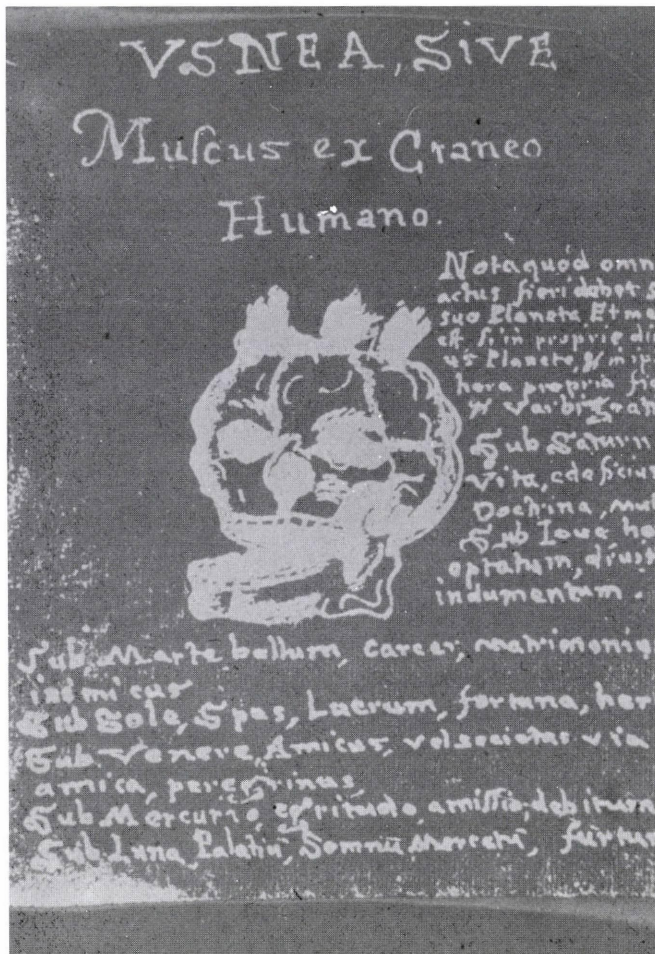 VSNEA, SIVE
Muſcus ex Craneo
Humano.
Nota quód omn
actus fieri debet s
suo Planeta Et me
est si in proprie di
us Planete, & in ip
hora propria fie
& Varbi gratı
Sub Saturn
Vita, edeficiu
Doctrina, mu
Sub Ioue ho
optatum, diuit
indumentum.
Sub Marte bellum, carcer, matrimoniu
inimicus
Sub Sole, Spes, Lucrum, fortuna, her
Sub Venere, Amicus, vel societas via
amica, peregrinus
Sub Mercurio, egritudo, amiſſio, debitum
Sub Luna, Palatiū, Somnū, Mercatū, furtum